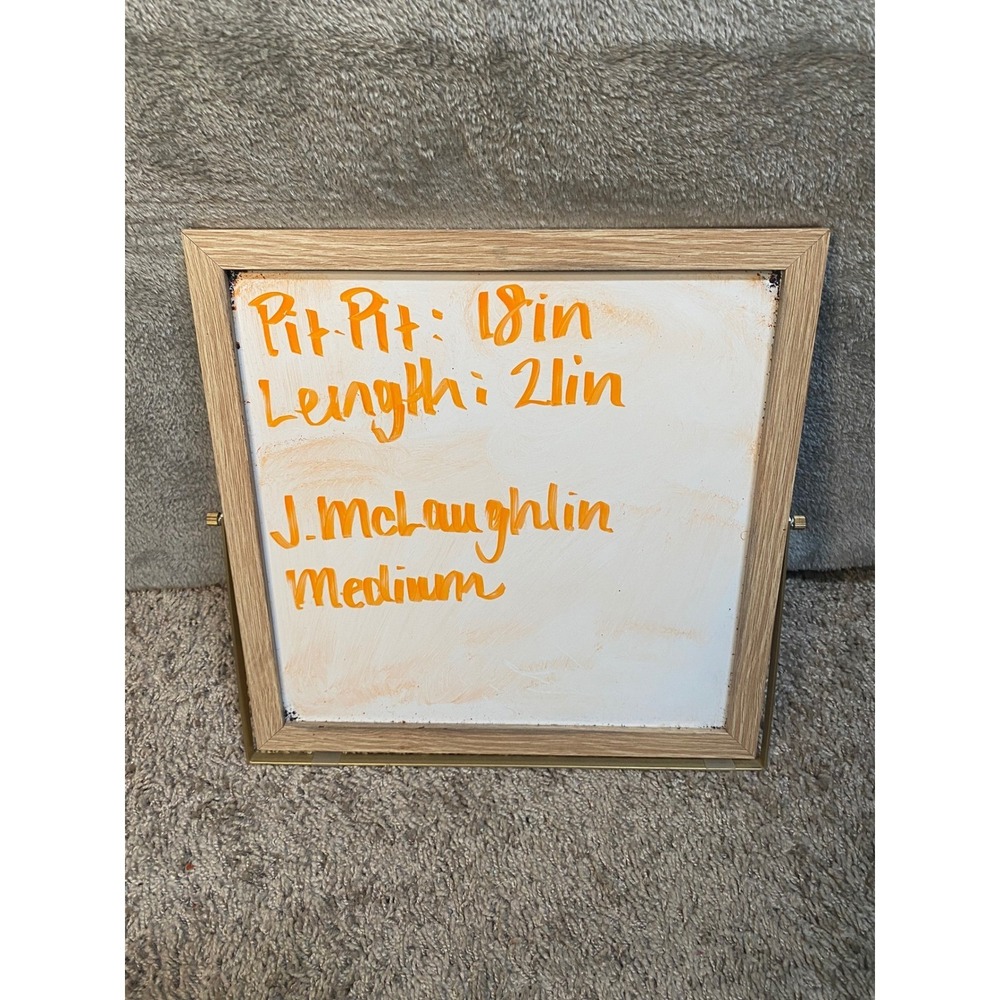 Pit-Pit: 18in
Length: 21in
J.McLaughlin
Medium